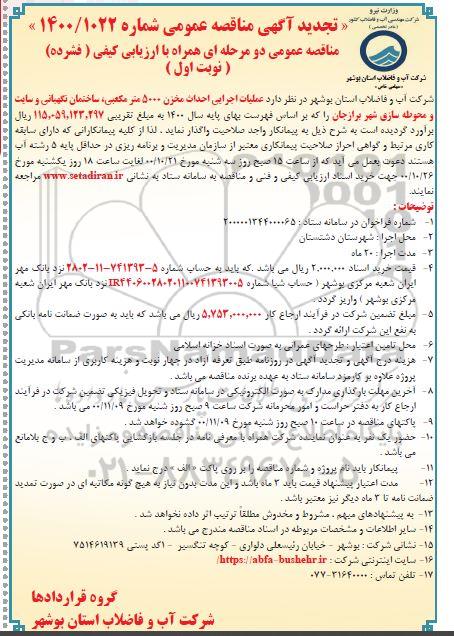 وزارت نیرو
شرکت مهندسی آب و فاضلاب کشور
(مادر تخصصی)
شرکت آب و فاضلاب استان بوشهر
(سهامی خاص)
« تجدید آگهی مناقصه عمومی شماره ۱۴۰۰/۱۰۲۲ »
مناقصه عمومی دو مرحله ای همراه با ارزیابی کیفی ( فشرده)
( نوبت اول )
شرکت آب و فاضلاب استان بوشهر در نظر دارد عملیات اجرایی احداث مخزن ۵۰۰۰ متر مکعبی، ساختمان نگهبانی و سایت
و محوطه سازی شهر برازجان را که بر اساس فهرست بهای پایه سال ۱۴۰۰ به مبلغ تقریبی ۱۱۵,۰۵۹,۱۲۳,۴۹۷ ریال
برآورد گردیده است به شرح ذیل به پیمانکار واجد صلاحیت واگذار نماید . لذا از کلیه پیمانکارانی که دارای سابقه
کاری مرتبط و گواهی احراز صلاحیت پیمانکاری معتبر از سازمان مدیریت و برنامه ریزی در حداقل پایه ۵ رشته آب
هستند دعوت بعمل می آید که از ساعت ۱۵ صبح روز سه شنبه مورخ ۰۰/۱۰/۲۱ لغایت ساعت ۱۸ روز یکشنبه مورخ
۰۰/۱۰/۲۶ جهت خرید اسناد ارزیابی کیفی و فنی و مناقصه به سامانه ستاد به نشانی www.setadiran.ir مراجعه
نمایند.
توضیحات :
۱- شماره فراخوان در سامانه ستاد : ۲۰۰۰۰۰۱۳۴۴۰۰۰۰۶۵
۲- محل اجرا : شهرستان دشتستان
۳- مدت اجرا : ۲۰ ماه
۴- قیمت خرید اسناد ۲,۰۰۰,۰۰۰ ریال می باشد .که باید به حساب شماره ۵-۷۴۱۳۹۳-۱۱-۲۸۰۲ نزد بانک مهر
ایران شعبه مرکزی بوشهر ( حساب شبا شماره IR۴۴۰۶۰۰۲۸۰۲۰۱۱۰۰۷۴۱۳۹۳۰۰۵ نزد بانک مهر ایران شعبه
مرکزی بوشهر ) واریز گردد .
۵- مبلغ تضمین شرکت در فرآیند ارجاع کار ۵,۷۵۳,۰۰۰,۰۰۰ ریال می باشد که باید به صورت ضمانت نامه بانکی
به نفع این شرکت ارائه گردد .
۶- محل تامین اعتبار : طرحهای عمرانی به صورت اسناد خزانه اسلامی
۷- هزینه درج آگهی و تجدید آگهی در روزنامه طبق تعرفه آزاد در چهار نوبت و هزینه کاربری از سامانه مدیریت
پروژه علاوه بو کارمزد سامانه ستاد به عهده برنده مناقصه می باشد .
۸- آخرین مهلت بارگذاری مدارک به صورت الکترونیکی در سامانه ستاد و تحویل فیزیکی تضمین شرکت در فرآیند
ارجاع کار به دفتر حراست و امور محرمانه شرکت ساعت ۹ صبح روز شنبه مورخ ۰۰/۱۱/۰۹ می باشد .
۹- پاکتهای مناقصه در ساعت ۱۰ صبح روز شنبه مورخ ۰۰/۱۱/۰۹ گشوده خواهد شد .
۱۰- حضور یک نفر به عنوان نماینده شرکت همراه با معرفی نامه در جلسه بازگشایی پاکتهای الف ، ب و ج بلامانع
می باشد .
۱۱- پیمانکار باید نام پروژه و شماره مناقصه را بر روی پاکت « الف » درج نماید .
۱۲- مدت اعتبار پیشنهاد قیمت باید ۳ ماه باشد و این مدت بدون نیاز به هیچ گونه مکاتبه ای در صورت تمدید
ضمانت نامه تا ۳ ماه دیگر نیز معتبر باشد .
۱۳- به پیشنهادهای مبهم ، مشروط و مخدوش مطلقاً ترتیب اثر داده نخواهد شد .
۱۴- سایر اطلاعات و مشخصات مربوطه در اسناد مناقصه مندرج می باشد .
۱۵- نشانی شرکت : بوشهر - خیابان رئیسعلی دلواری - کوچه تنگسیر - ۱کد پستی ۷۵۱۴۶۱۹۱۳۹
۱۶- سایت اینترنتی شرکت : https://abfa-bushehr.ir/
۱۷- تلفن تماس : ۳۱۶۴۰۰۰۰-۰۷۷
گروه قراردادها
شرکت آب و فاضلاب استان بوشهر